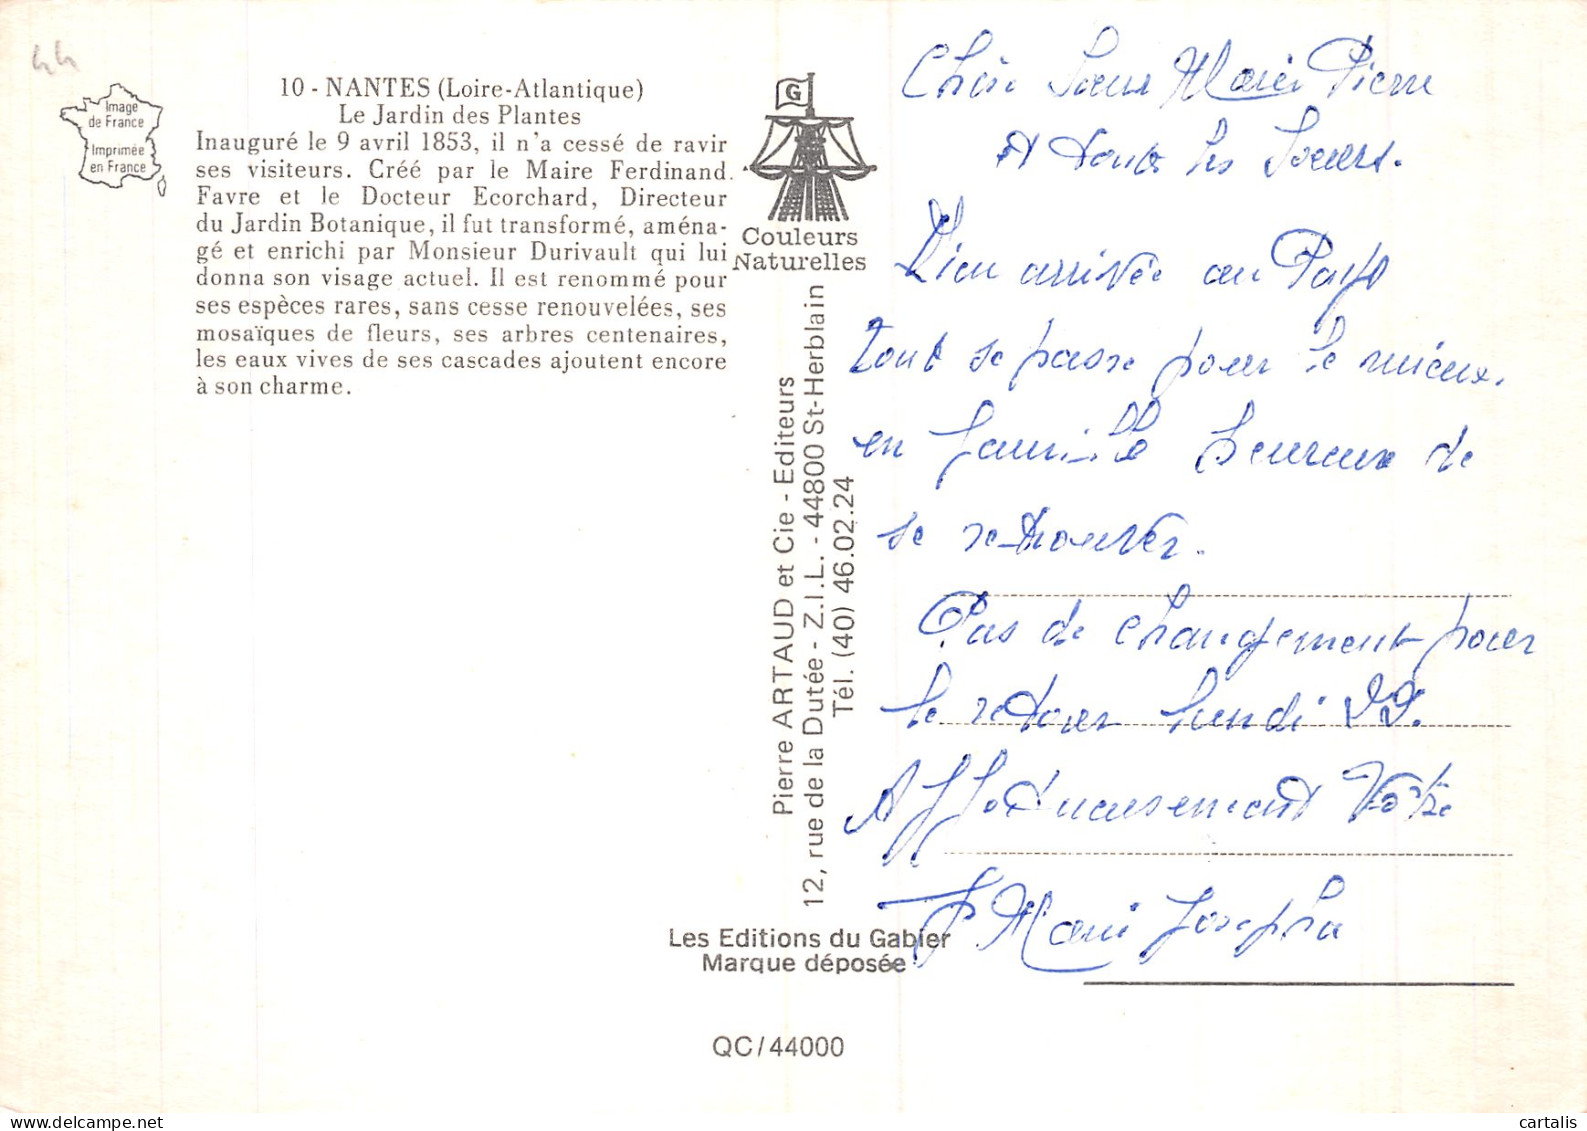 44
Image
de France
Imprimée
en France
10 - NANTES (Loire-Atlantique)
Le Jardin des Plantes
Inauguré le 9 avril 1853, il n'a cessé de ravir
ses visiteurs. Créé par le Maire Ferdinand
Favre et le Docteur Ecorchard, Directeur
du Jardin Botanique, il fut transformé, aména-
gé et enrichi par Monsieur Durivault qui lui
donna son visage actuel. Il est renommé pour
ses espèces rares, sans cesse renouvelées, ses
mosaïques de fleurs, ses arbres centenaires,
les eaux vives de ses cascades ajoutent encore
à son charme.
G
Couleurs
Naturelles
Pierre ARTAUD et Cie - Editeurs
12, rue de la Dutée - Z.I.L. - 44800 St-Herblain
Tél. (40) 46.02.24
Les Editions du Gabier
Marque déposée
QC/44000
Chère Soeur Marie Pierre
et toutes les Soeurs.
Bien arrivée au Pays
tout se passe pour le mieux.
en famille heureux de
se retrouver.
Pas de changement pour
le retour lundi 22.
Affectueusement Votre
Sr Marie Josepha
cartalis